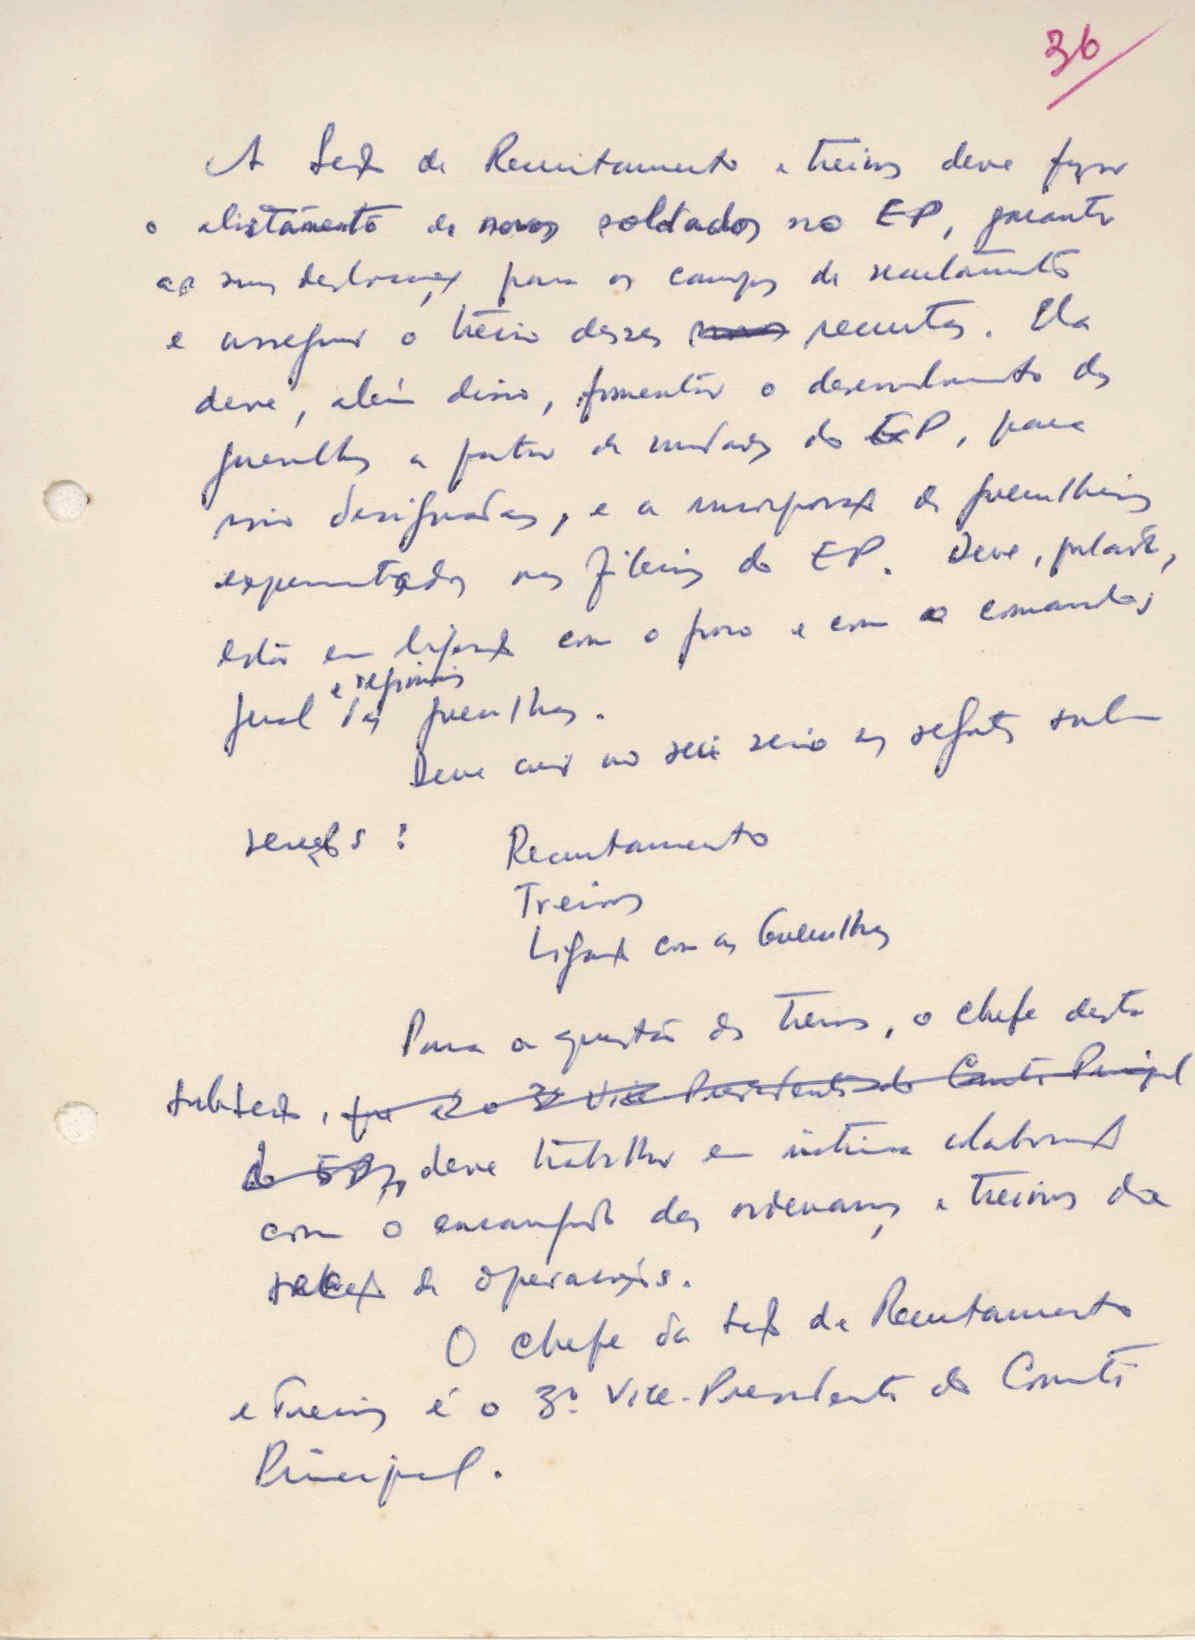 36
A Secç de Recrutamento e treinos deve fazer
o alistamento de novos soldados no EP, garantir
as suas deslocações para os campos de recrutamento
e assegurar o treino desses recrutas. Ela
deve, além disso, fomentar o desenvolvimento das
guerrilhas a partir de unidades do EP, para
isso designadas, e a incorporaç de guerrilheiros
experimentados nas fileiras do EP. Deve, portanto,
estar em ligaç com o povo e com o comandos
e regionais
geral das guerrilhas.
Deve criar no seu seio as segts sub
secções:
Recrutamento
Treinos
Ligaç com as Guerrilhas
Para a questão dos treinos, o chefe desta
subsecç, que é o 3º Vice Presidente do Comité Principal
do EP, deve trabalhar em íntima colaboraç
com o encarregado das ordenanças e treinos da
secç de Operações.
O chefe da secç de Recrutamento
e Treinos é o 3º Vice-Presidente do Comité
Principal.